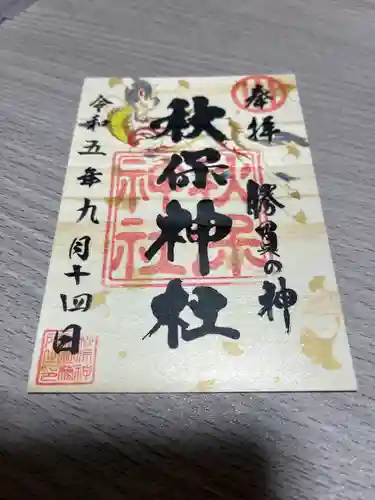 奉拝
勝負の神
秋保神社
令和五年九月十四日
秋保
神社